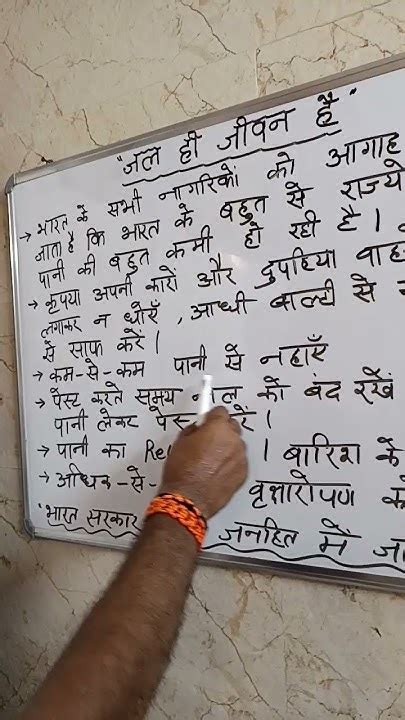 "जल ही जीवन है"
→ भारत के सभी नागरिकों को आगाह
जाता है कि भारत के बहुत से राज्यो
पानी की बहुत कमी हो रही है।
→ कृपया अपनी कारों और दुपहिया
लगाकर न धोएँ, आधी बाल्टी से
से साफ करें।
→ कम-से-कम पानी से नहाएँ
→ पेस्ट करते समय नल को बंद रखें
पानी लेकर
→ पानी का । बारिश के
→ अधिक-से- वृक्षारोपण
"भारत सरकार जनहित में